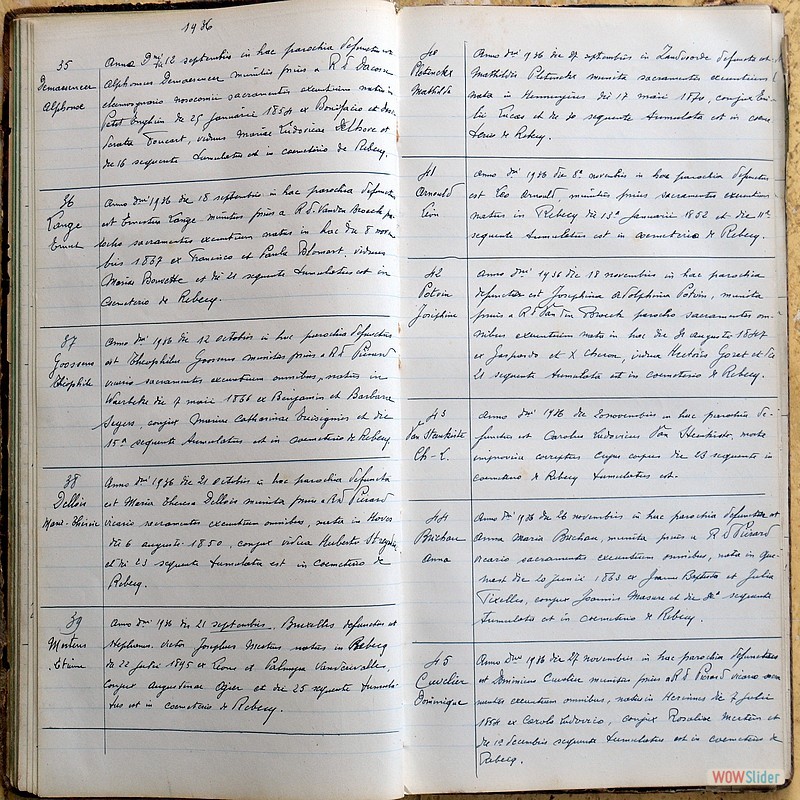 1936
35
Demaesencer
Alphonse
Anno Dni 12 septembris in hac parochia defunctus est
Alphonsus Demaesencer munitus prius a R d
eleemosynario nosocomii sacramentis exeuntium natus in
Petit Enghien die 25 januarii 1854 ex Bonifacio et
Foucart, viduus Mariae Ludovicae Delbove et
die 16 sequente tumulatus est in coemeterio de Rebecq.
36
Lange
Ernest
Anno dni 1936 die 18 septembris in hac parochia defunctus
est Ernestus Lange munitus prius a R d Vanden Broeck pa-
rocho sacramentis exeuntium natus in hac die 8 novem
bris 1867 ex Francisco et Paula Blomart, viduus
Mariae et die 21 sequente tumulatus est in
coemeterio de Rebecq.
37
Goossens
Théophile
Anno dni 1936 die 12 octobris in hac parochia defunctus
est Theophilus Goossens munitus prius a R d Pierard
vicario sacramentis exeuntium omnibus, natus in
Waerbeke die 7 maii 1866 ex Benjamin et Barbara
Seyers, conjux Mariae Catharinae et die
15a sequente tumulatus est in coemeterio de Rebecq
38
Dellois
Marie-Thérèse
Anno dni 1936 die 21 octobris in hac parochia defuncta
est Maria Theresa Dellois munita prius a R d Pierard
vicario sacramentis exeuntium omnibus, nata in Hoves
die 6 augusti 1850, conjux vidua Huberti
et die 23 sequente tumulata est in coemeterio de
Rebecq.
39
Mertens
Etienne
Anno dni 1936 die 21 septembris, Bruxelles defunctus est
Stephanus victor Josephus Mertens natus in Rebecq
die 22 julii 1895 ex Leone et Palmyra Vancauvalles,
conjux Augustinae et die 25 sequente tumula-
tus est in coemeterio de Rebecq.
40
Pletinckx
Mathilde
Anno dni 1936 die 27 septembris in Zandvoorde defuncta est
Mathildis Pletinckx munita sacramentis exeuntium
nata in Hennuyères die 17 maii 1870, conjux
Lucas et die 30 sequente tumulata est in coeme
terio de Rebecq.
41
Arnould
Léon
Anno dni 1936 die 8a novembris in hac parochia defunctus
est Leo Arnould, munitus prius sacramentis exeuntium
natus in Rebecq die 13a januarii 1852 et die 11a
sequente tumulatus est in coemeterio de Rebecq.
42
Potvin
Joséphine
Anno dni 1936 die 18 novembris in hac parochia
defuncta est Josephina Adolphina Potvin, munita
prius a R d Van Den Broeck parocho sacramentis om
nibus exeuntium nata in hac die 30 augusti 1847
ex Gaspardo et X Charon, vidua Hectoris Goret et die
21 sequente tumulata est in coemeterio de Rebecq.
43
Ch-L.
Anno dni 1936 die 20 novembris in hac parochia de-
functus est Carolus Ludovicus Van morte
improvisa correptus cujus corpus die 23 sequente in
coemeterio de Rebecq tumulatus est.
44
Brichau
Anna
Anno dni 1936 die 26 novembris in hac parochia defuncta est
Anna Maria Brichau, munita prius a R d Pierard
vicario sacramentis exeuntium omnibus, nata in Que-
nast die 20 junii 1863 ex Joanne Baptista et Julia
Tixelles, conjux Joannis Masure et die 30a sequente
tumulata est in coemeterio de Rebecq.
45
Cuvelier
Dominique
Anno dni 1936 die 27 novembris in hac parochia defunctus
est Dominicus Cuvelier munitus prius a R d Pierard vicario sacra
mentis exeuntium omnibus, natus in Herinnes die 7 julii
1854 ex Carolo Ludovico, conjux Rosaliae Mertens et
die 1a decembris sequente tumulatus est in coemeterio de
Rebecq.
WOWSlider